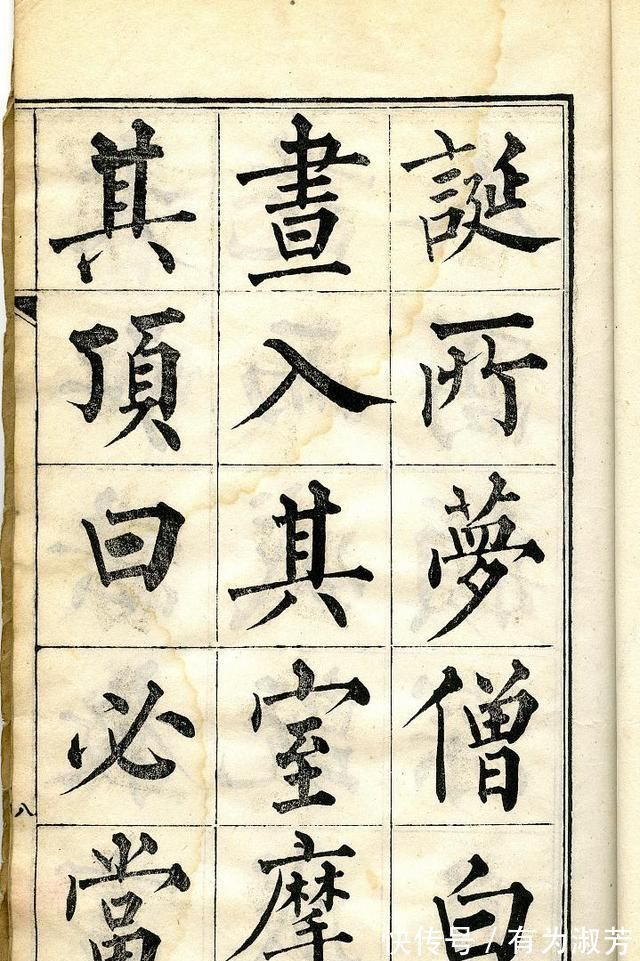 誕所夢僧白
晝入其室摩
其頂曰必當
八
快传号 / 有为淑芳